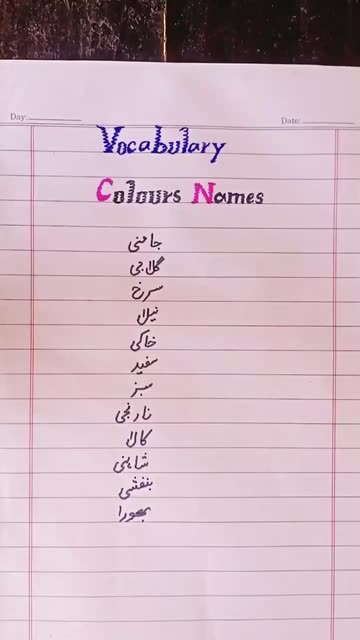 Day:
Date:
Vocabulary
Colours Names
جامنی
گلابی
سرخ
نیلا
خاکی
سفید
سبز
نارنجی
کالا
بنفشی
بھورا